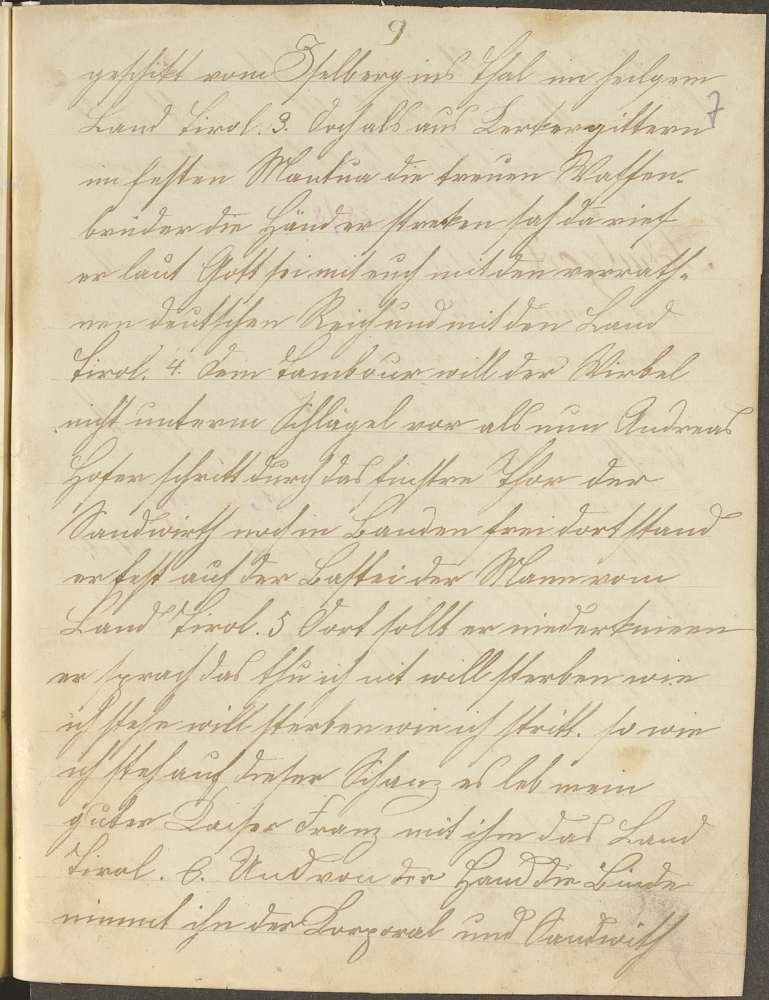 9
7
geschikt vom Iselberg ins Thal im heilgem
Land Tirol. 3. Doch als aus Kerkergittern
im festen Mantua die treuen Waffen-
brüder die Händer streken sah da rief
er laut Gott sei mit euch mit den verrath-
nen deutschen Reich und mit den Land
Tirol. 4. Dem Tambour will der Wirbel
nicht unterm Schlägel vor als nun Andreas
Hofer schritt durch das finstre Thor der
Sandwirth noch in Banden frei dort stand
er fest auf der Bastei der Mann vom
Land Tirol. 5 Dort sollt er niederknieen
er sprach das thu ich nit will sterben wie
ich stehe will sterben wie ich stritt. so wie
ich steh auf dieser Schanz es leb mein
guter Kaiser Franz mit ihm das Land
Tirol. 6. Und von der Hand die Binde
nimmt ihn der Korporal und Sandwith